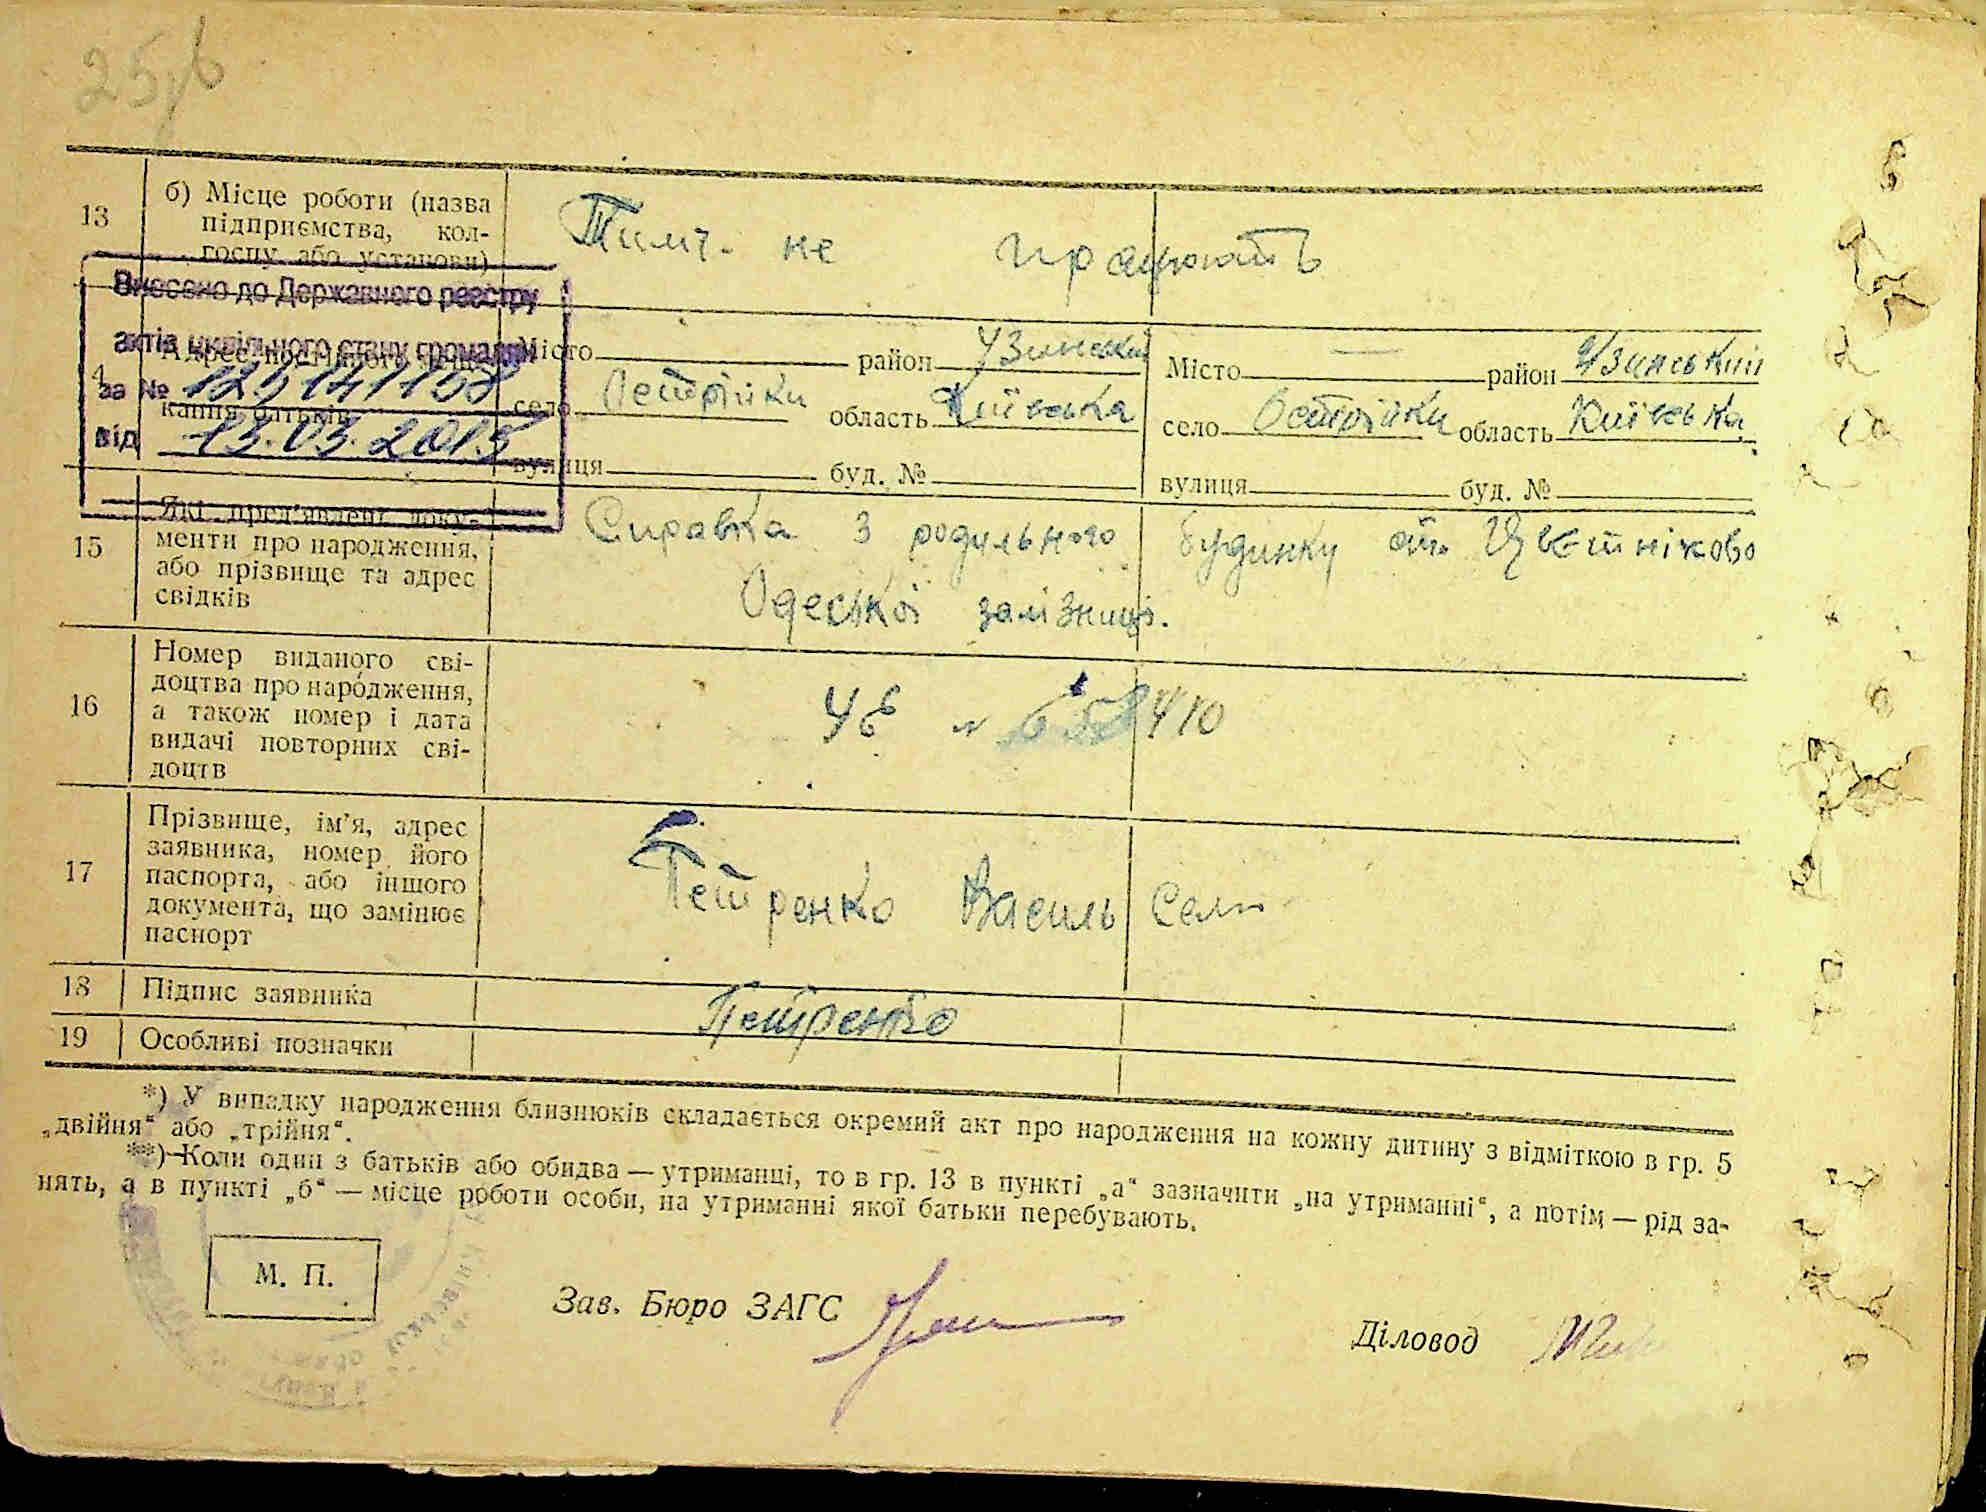 13
б) Місце роботи (назва
підприємства, кол-
госпу або установи)
Тимч. не працюють
Внесено до Державного реєстру
актів цивільного стану громадян
за №
від 13.03.2015
Місто район Узинський
село Острійки область Київська
вулиця буд. №
Місто — район Узинський
село Острійки область Київська
вулиця буд. №
15
Які пред'явлені доку-
менти про народження,
або прізвище та адрес
свідків
Справка з родульного будинку ст. Цветніково
Одеської залізниці.
16
Номер виданого сві-
доцтва про народження,
а також номер і дата
видачі повторних сві-
доцтв
410
17
Прізвище, ім'я, адрес
заявника, номер його
паспорта, або іншого
документа, що замінює
паспорт
Петренко Василь
18 Підпис заявника
Петренко
19 Особливі позначки
*) У випадку народження близнюків складається окремий акт про народження на кожну дитину з відміткою в гр. 5
„двійня“ або „трійня“.
**) Коли один з батьків або обидва — утриманці, то в гр. 13 в пункті „а“ зазначити „на утриманні“, а потім — рід за-
нять, а в пункті „б“ — місце роботи особи, на утриманні якої батьки перебувають.
М. П.
Зав. Бюро ЗАГС
Діловод